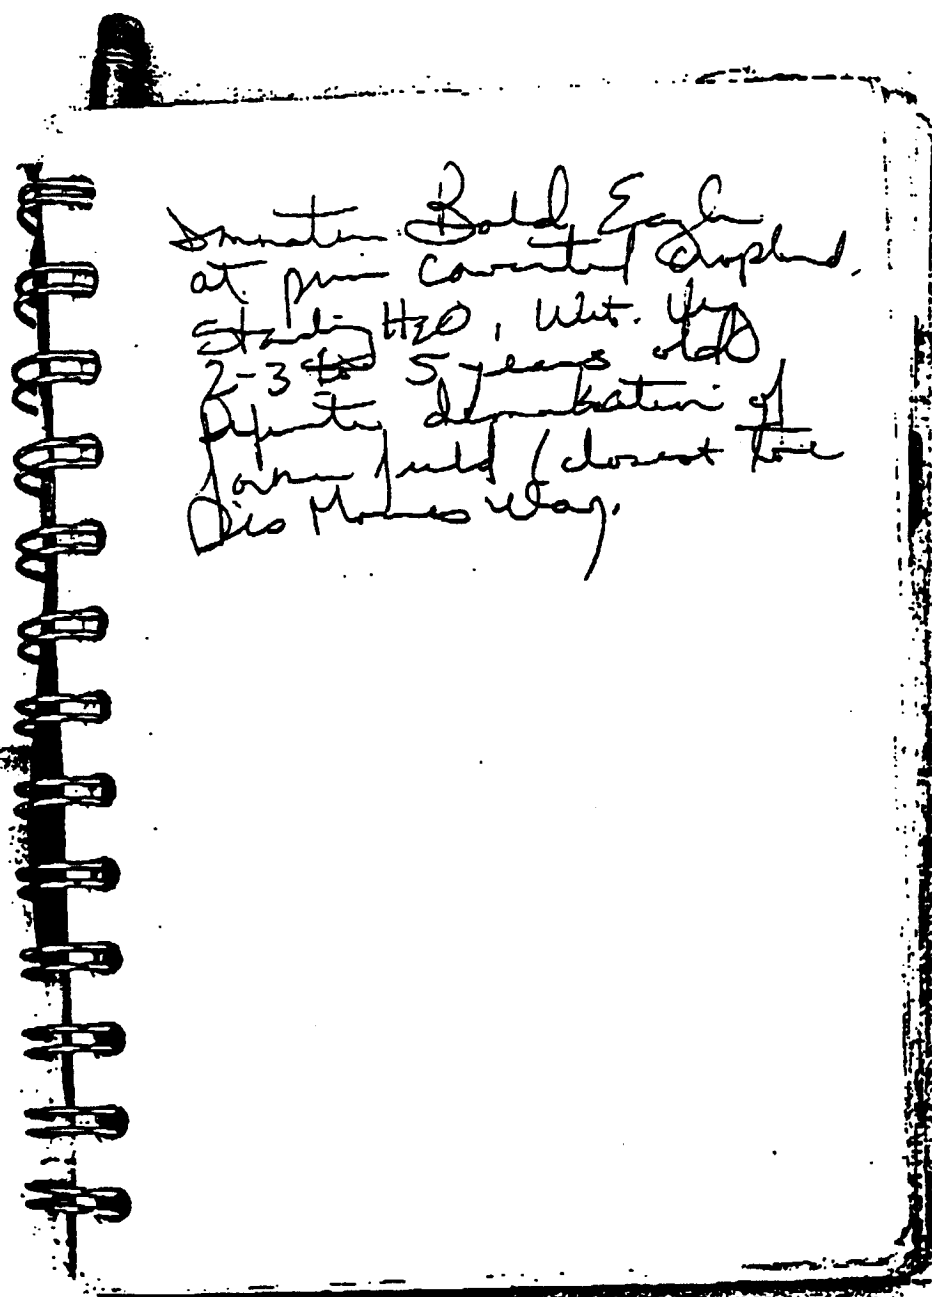 Immature Bald Eagle
at prior converted cropland.
Standing H2O, Wet. Veg
2-3 to 5 years old
Definite demarkation of
former field / closest to
Des Moines Way.